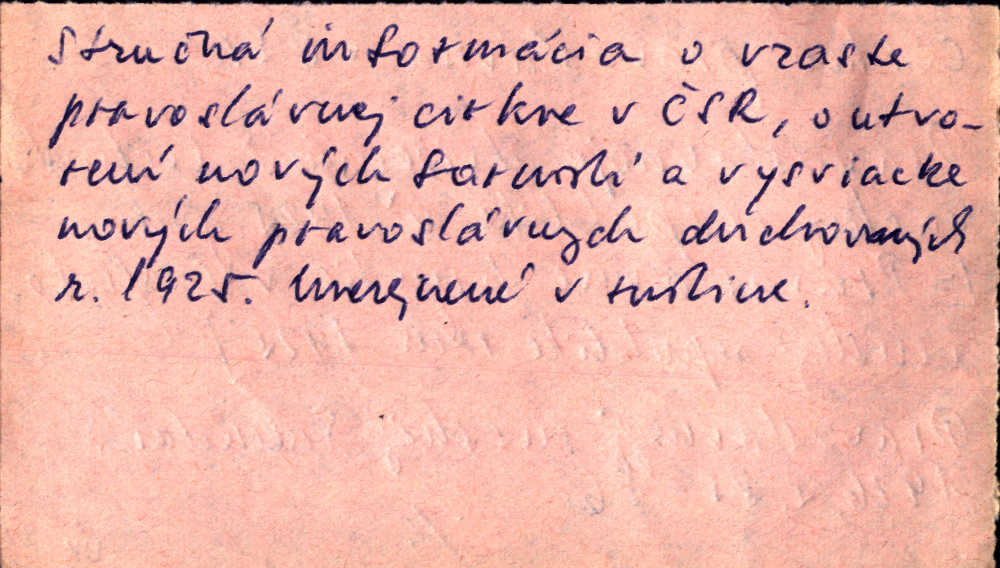 Stručná informácia o vzraste
pravoslávnej cirkve v ČSR, o utvo-
rení nových farností a vysviacke
nových pravoslávnych duchovných
r. 1925. Uverejnené v rusštine.